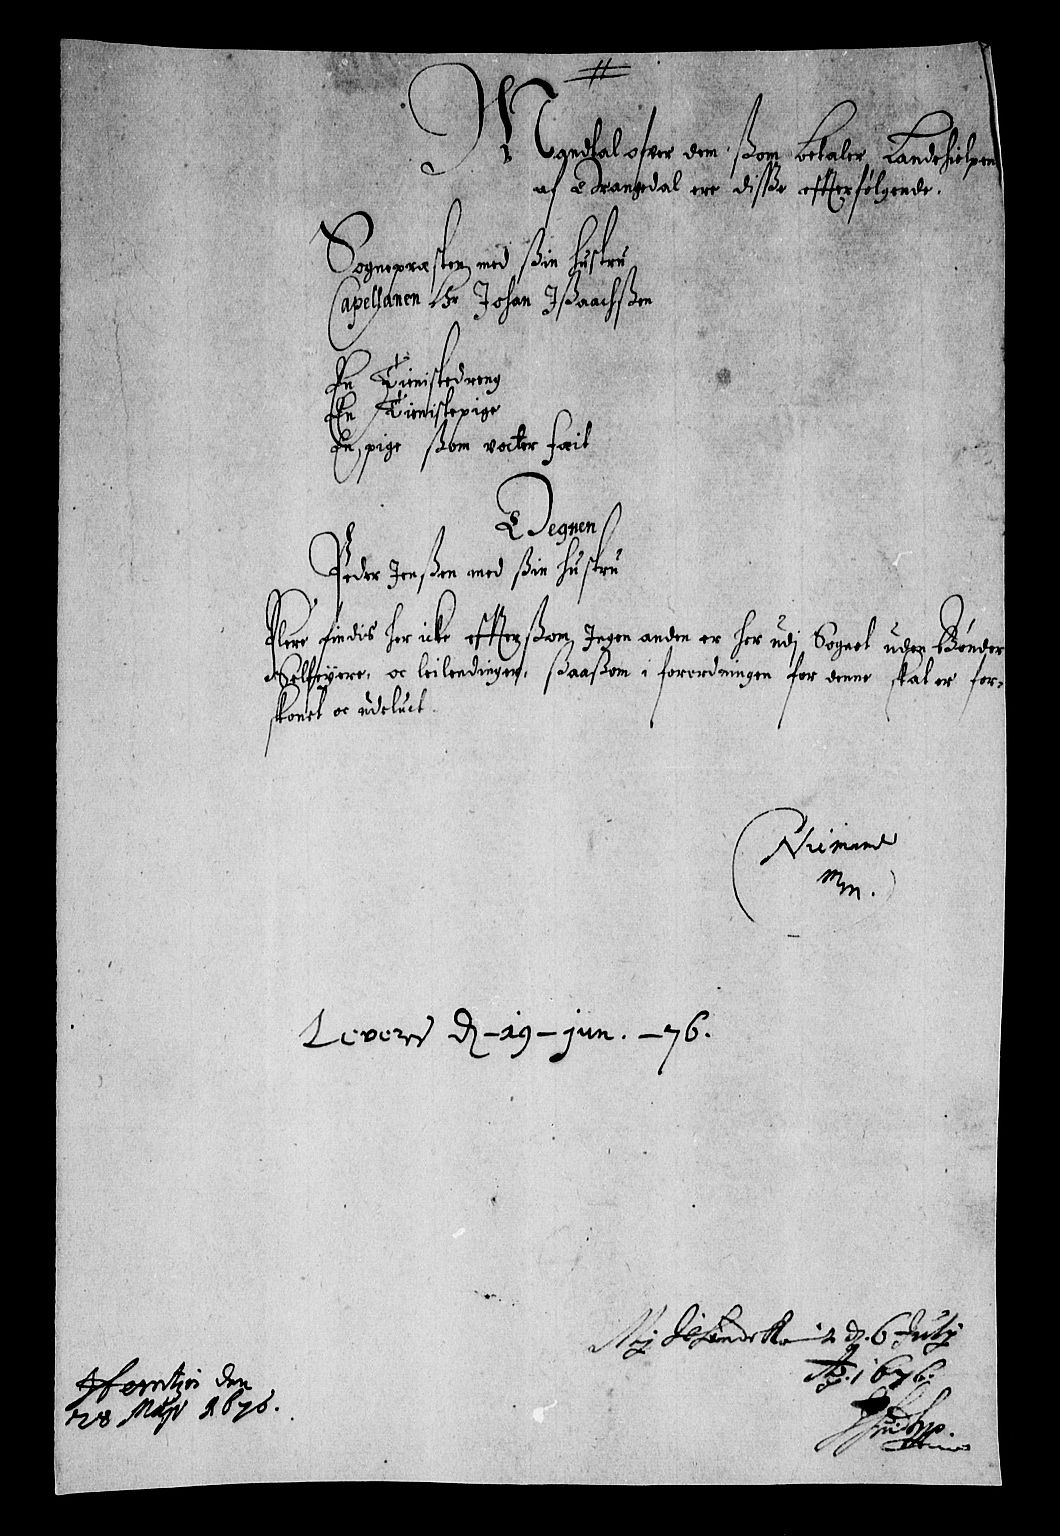 Mandtal ofver dem ßom betaler Landehielpen
af Drangedal ere disße efterfølgende.
Sognepræsten med ßin hustru
Capellanen Hr Johan Jßaachßen
En Tienistedreng
En Tienistepige
En pige ßom vocter fæil
Degnen
Peder Jenßen med ßin hustru
Flere findis her icke efterßom Ingen anden er her udj Sognet uden Bønder
Selfeyere, oc leilendinger, ßaaßom i forordningen for denne skat er for-
skonet oc udeluct.
Niemand
mm.
Levert d - 19 - jun. - 76.
d. 6 Julij
Ao. 1676.
den
28 Maji 1676.